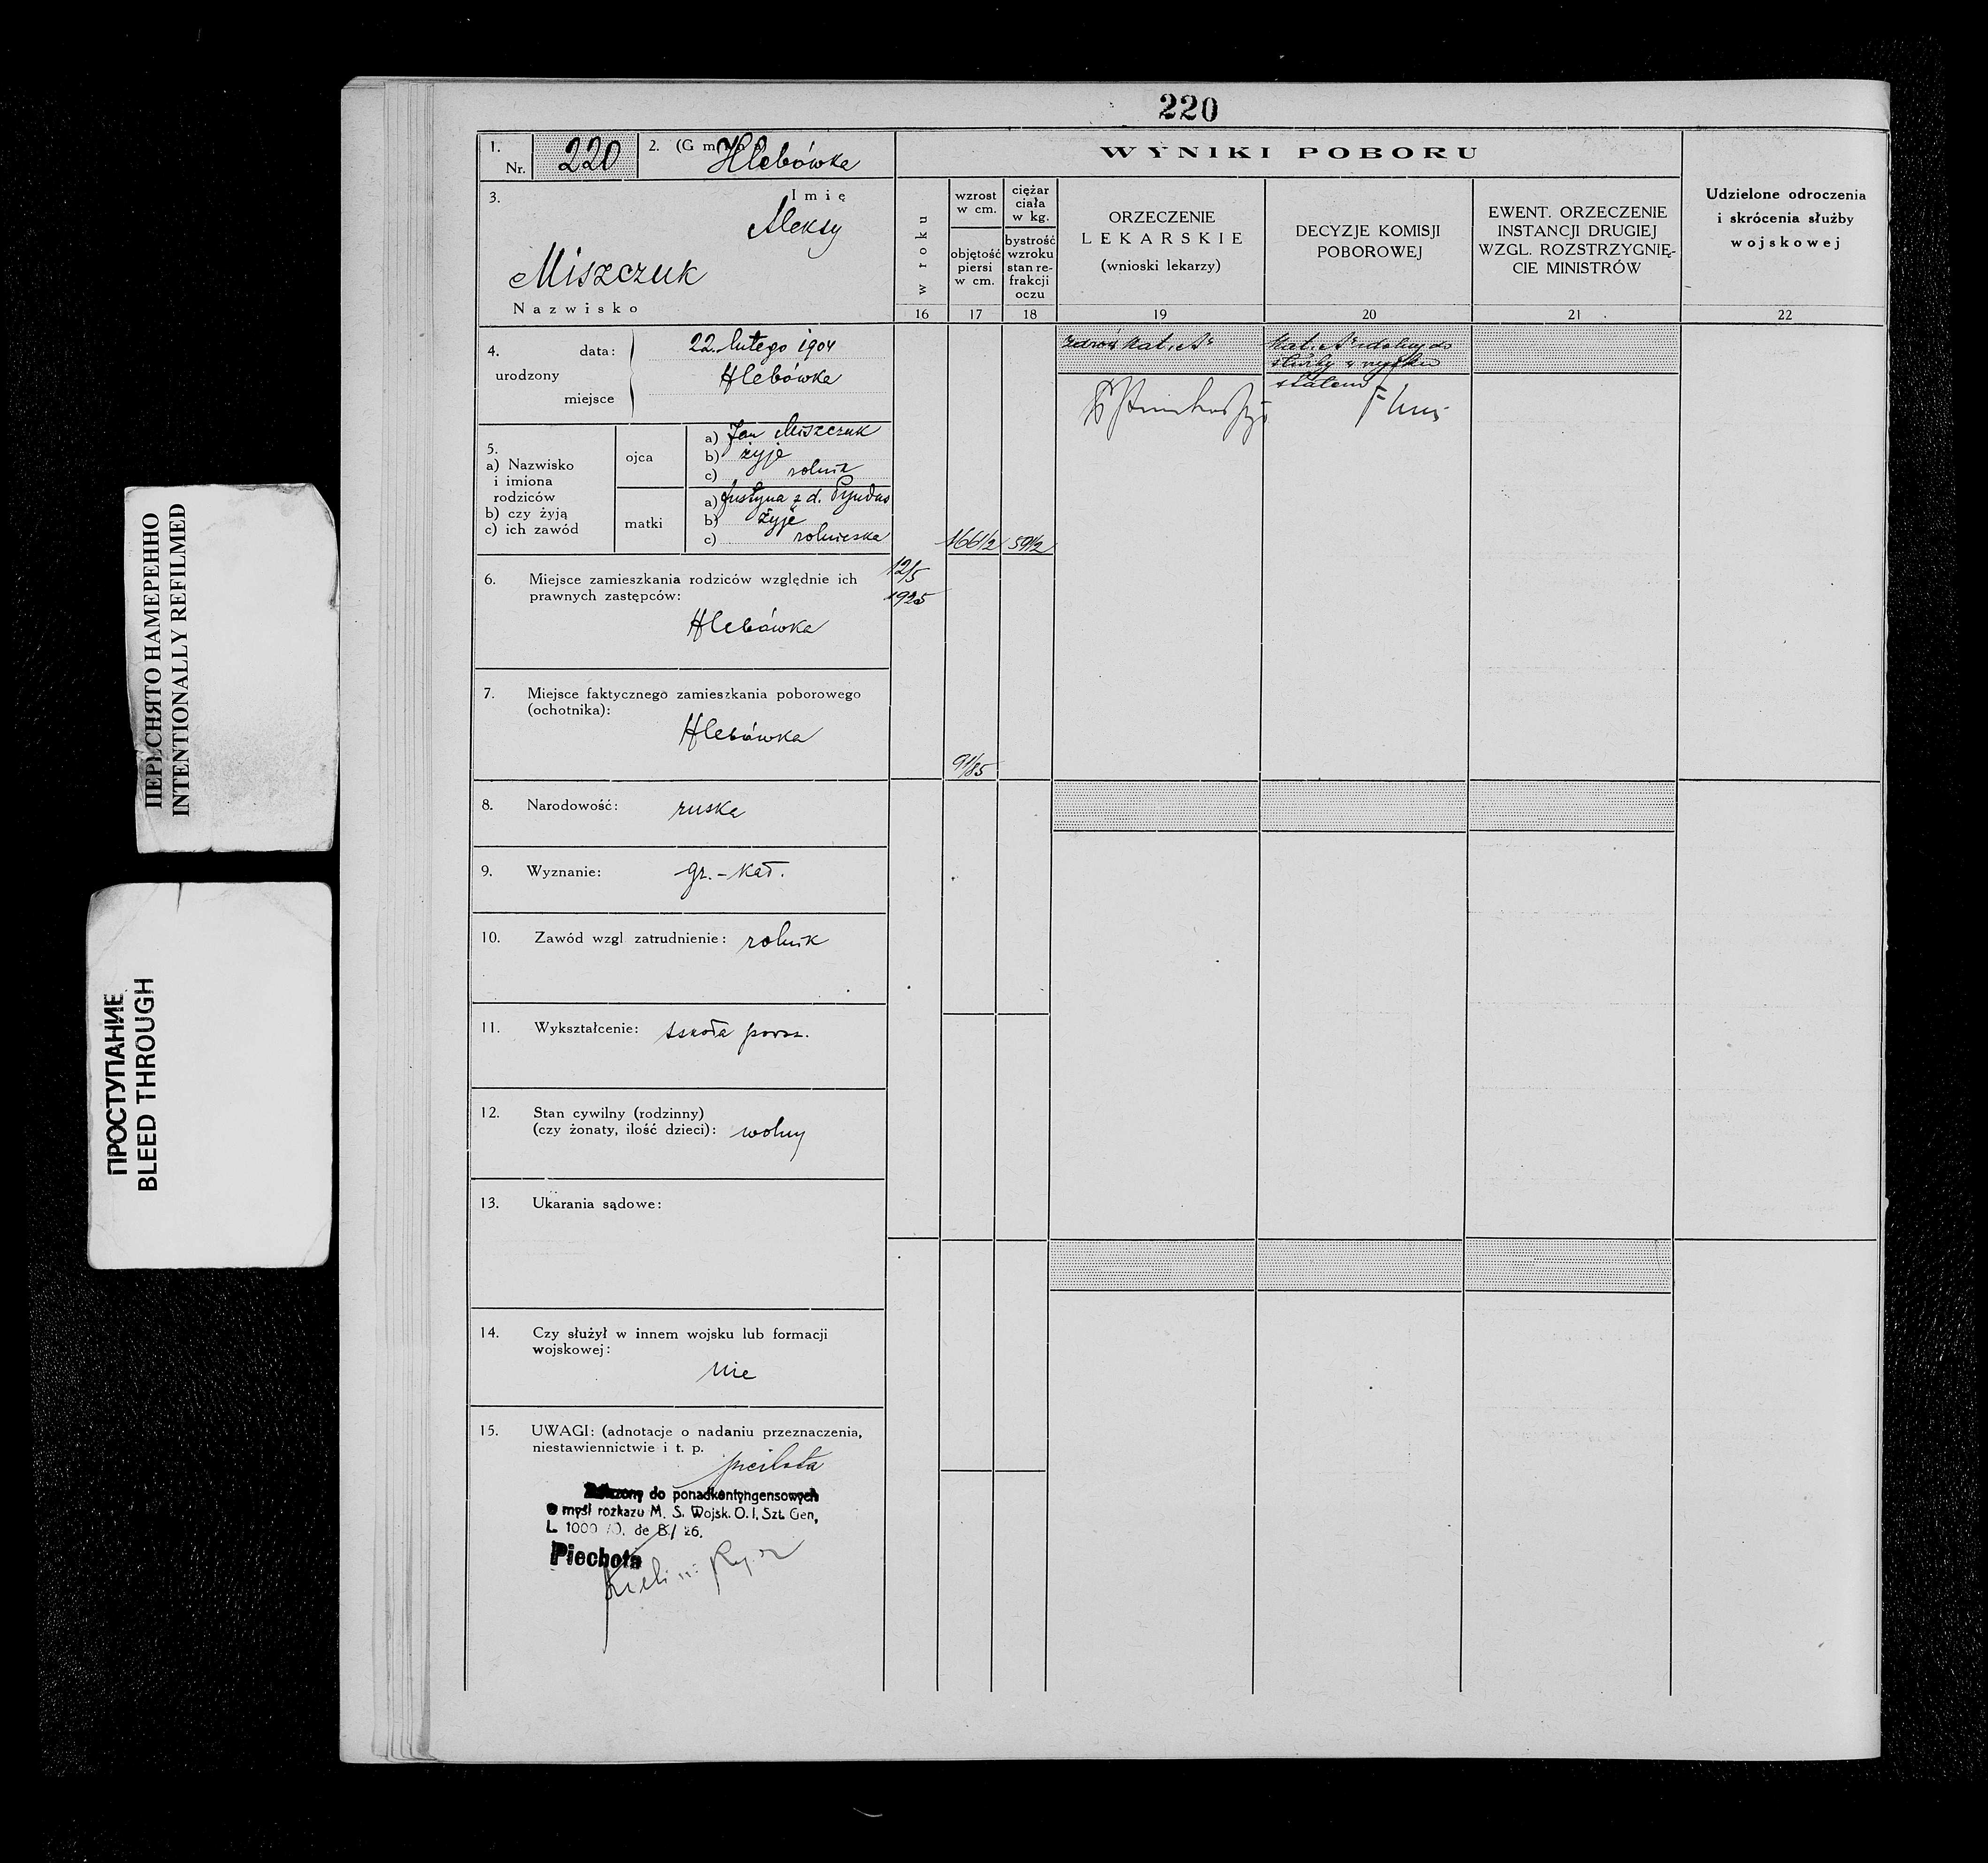 220
1.
Nr. 220
2. (Gmina) Hlebówka
3.
Imię
Aleksy
Miszczuk
Nazwisko
4. data: 22. lutego 1904
urodzony Hlebówka
miejsce
5.
a) Nazwisko
i imiona
rodziców
b) czy żyją
c) ich zawód
ojca
a) Jan Miszczuk
b) żyje
c) rolnik
matki
a) Justyna z d.
b) żyje
c) rolniczka
6. Miejsce zamieszkania rodziców względnie ich
prawnych zastępców:
Hlebówka
7. Miejsce faktycznego zamieszkania poborowego
(ochotnika):
Hlebówka
8. Narodowość: ruska
9. Wyznanie: gr.-kat.
10. Zawód wzgl zatrudnienie: rolnik
11. Wykształcenie: szkoła powsz.
12. Stan cywilny (rodzinny)
(czy żonaty, ilość dzieci): wolny
13. Ukarania sądowe:
14. Czy służył w innem wojsku lub formacji
wojskowej:
nie
15. UWAGI: (adnotacje o nadaniu przeznaczenia,
niestawiennictwie i t. p.
piechota
do ponadkontyngensowych
myśl rozkazu M. S. Wojsk. O. I. Szt. Gen,
L. 1000 de B./26.
Piechota
WYNIKI POBORU
w roku
16
12/5
1925
wzrost
w cm.
objętość
piersi
w cm.
17
166 1/2
91/85
ciężar
ciała
w kg.
bystrość
wzroku
stan re-
frakcji
oczu
18
59 1/2
ORZECZENIE
LEKARSKIE
(wnioski lekarzy)
19
zdrów kat. A
DECYZJE KOMISJI
POBOROWEJ
20
Kat. A zdolny do
służby w wojsku
stałem
EWENT. ORZECZENIE
INSTANCJI DRUGIEJ
WZGL. ROZSTRZYGNIĘ-
CIE MINISTRÓW
21
Udzielone odroczenia
i skrócenia służby
wojskowej
22
ПЕРЕСНЯТО НАМЕРЕННО
INTENTIONALLY REFILMED
ПРОСТУПАНИЕ
BLEED THROUGH